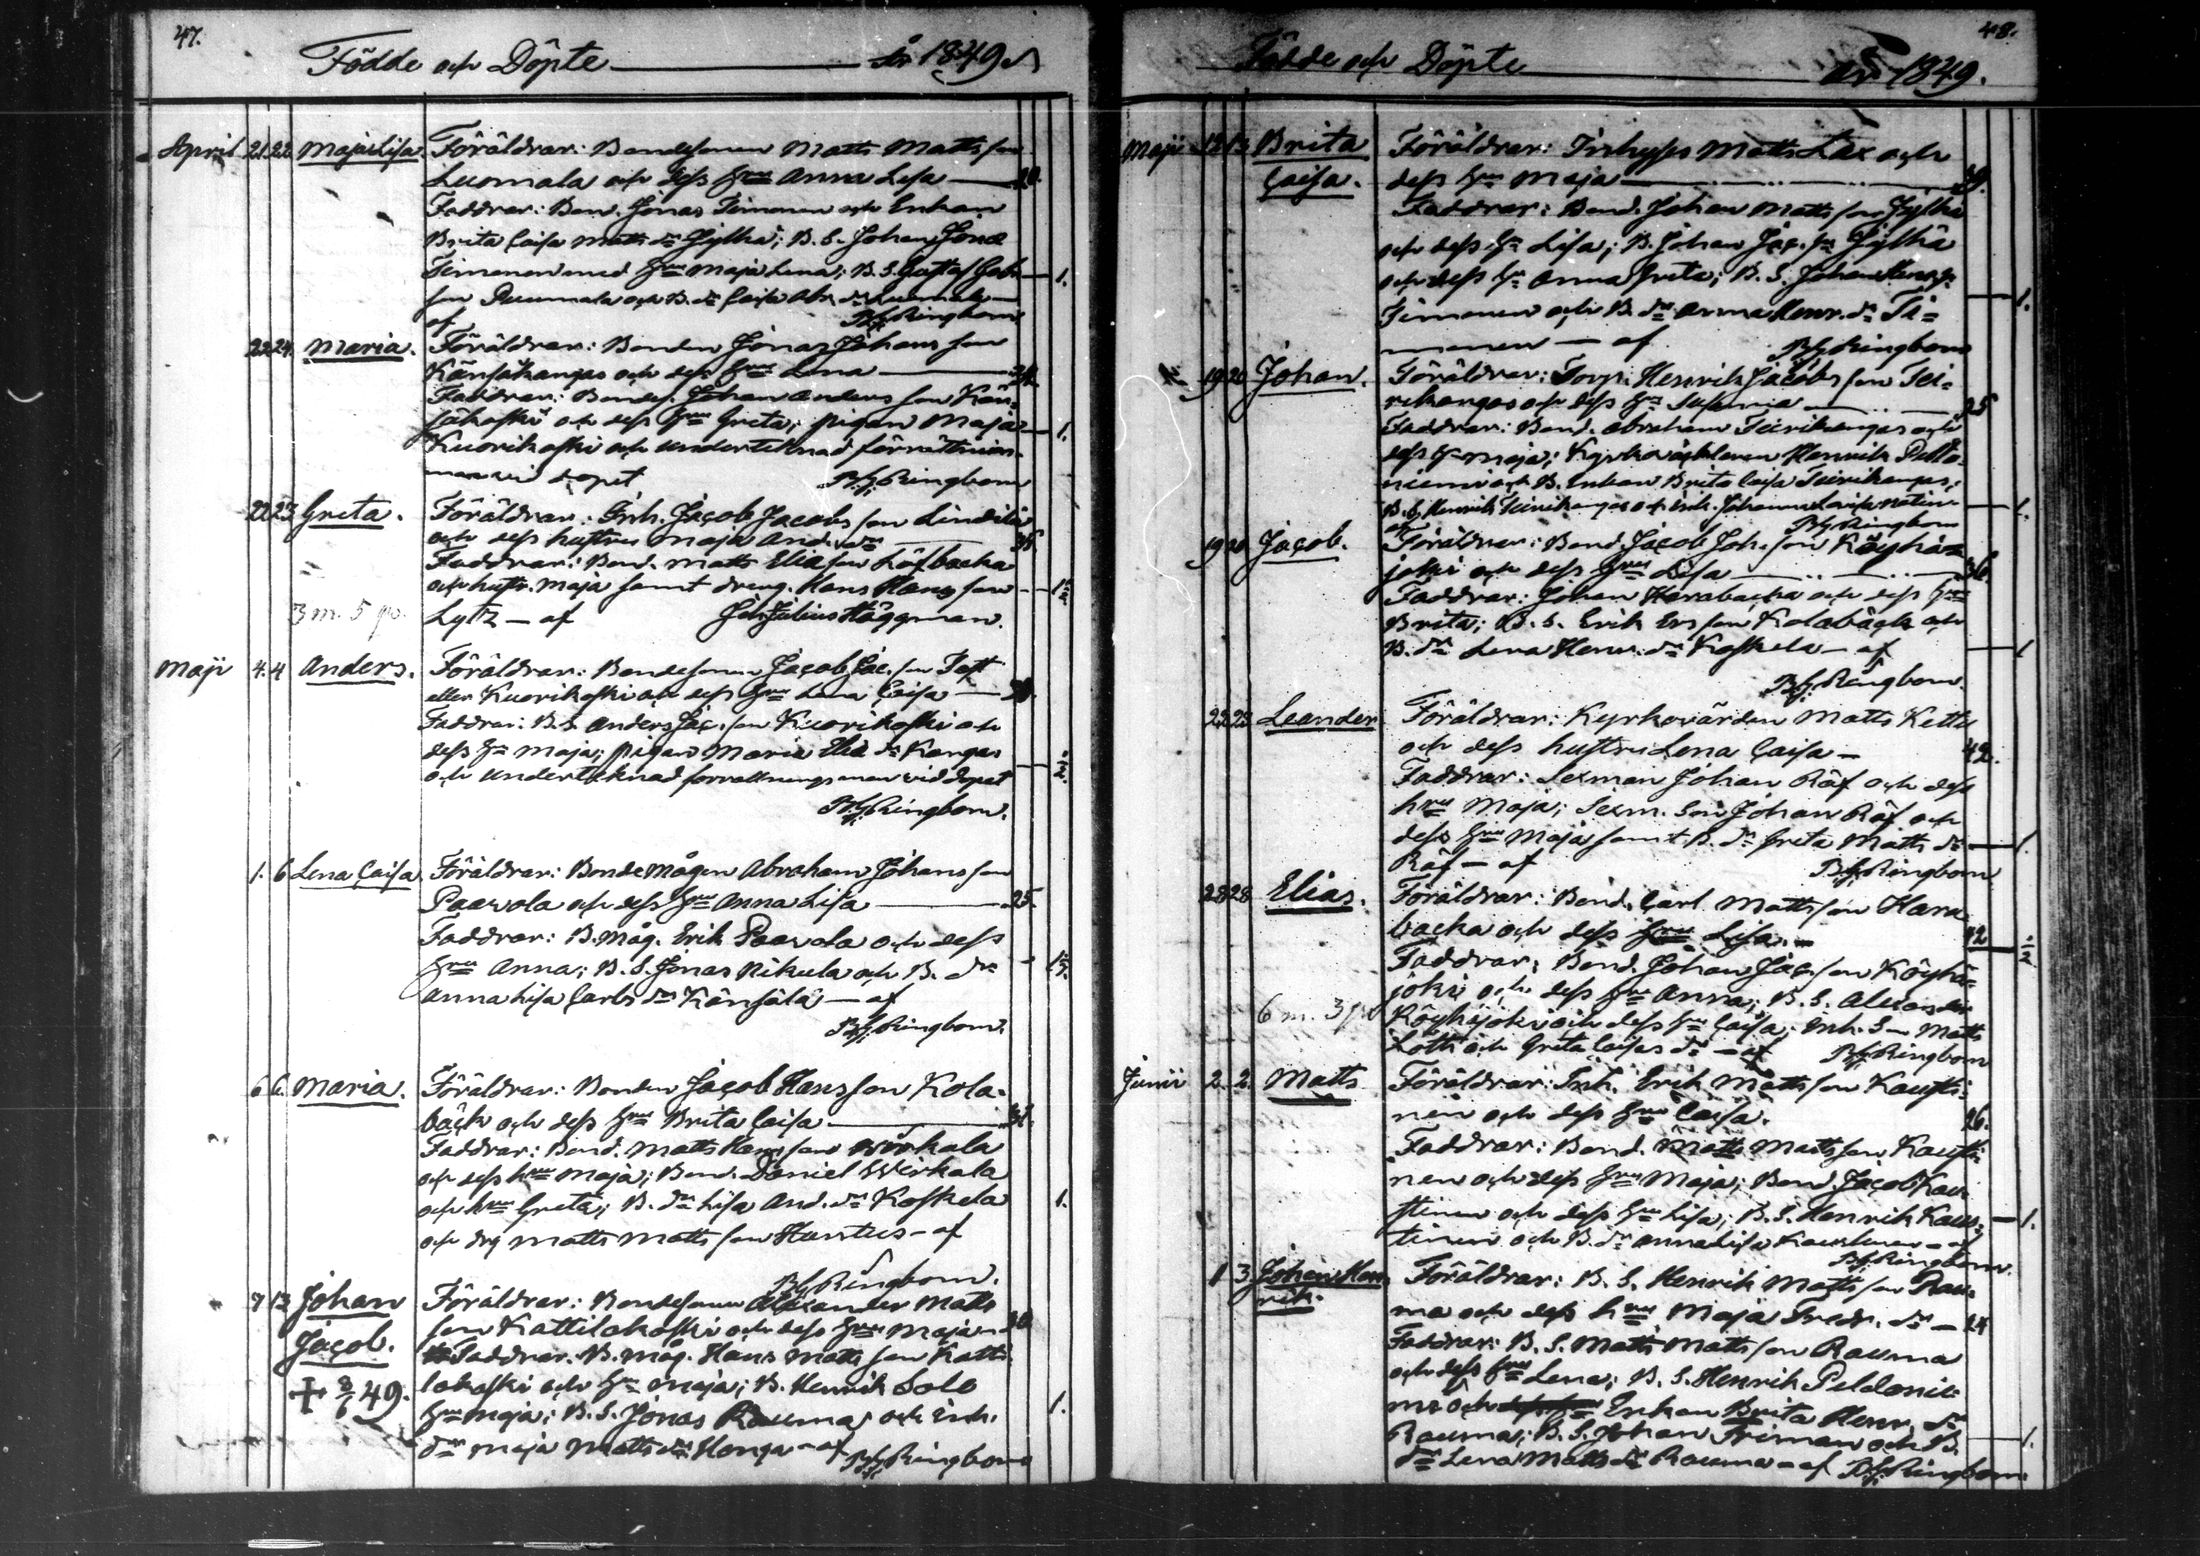 47.
Födde och Döpte år 1849.
April 21 22 Maja Lisa. Föräldrar: Bondesonen Matts Matts son
Luomala och dess hru Anna Lisa
Faddrar: Bon. Jonas Timonen och Enkan
Brita Caisa Matts dr Jylhä; B. S. Johan Jonæ
Timonen med hru Maja Lena; B. S. Gustaf Gab.
son Puumala och B. dr Caisa Abr. dr Luomala 1.
af BG Ringbom
22 24 Maria. Föräldrar: Bonden Jonas Johans son
Känsäkangas och dess hru Lena
Faddrar: Bondes. Johan Anders son Kän-
säkoski och dess hru Greta; pigan Maja 1.
Kuorikoski och undertecknad förrättnings-
man vid dopet BG Ringbom
22 23 Greta. Föräldrar: Inh. Jacob Jacobs son Lindilä
och dess hustru Maja And. dr
Faddrar: Bond. Matts Eliæ son Löfbacka
och hustr. Maja samt dreng. Hans Hans son
3 m. 5 Lytz – af Joh. Julius Häggman.
Maji 4. 4 Anders. Föräldrar: Bondesonen Jacob Jac. son Tast
eller Kuorikoski och dess hru Lena Caisa
Faddrar: B. S. Anders Jac. son Kuorikoski och
dess hru Maja; pigan Maria Eliæ dr Kangas
och undertecknad förrättningsman vid dopet
BG Ringbom.
1. 6 Lena Caisa. Föräldrar: Bondemågen Abraham Johans son
Paavola och dess hru Anna Lisa 25.
Faddrar: B. Måg. Erik Paavola och dess
hru Anna; B. S. Jonas Nikula och B. dr
Anna Lisa Carls dr Känsälä – af
BG Ringbom.
6 6. Maria. Föräldrar: Bonden Jacob Hans son Kola-
bäck och dess hru Brita Caisa
Faddrar: Bond. Matts Hans son Wirkala
och dess hru Maja; Bond. Daniel Wirkala
och hru Greta; B. dr Lisa And. dr Koskela 1.
och drg Matts Matts son Huntus – af
BG Ringbom.
7 13 Johan Föräldrar: Bondesonen Alexander Matts
son Kattilakoski och dess hru Maja
Jacob. Faddrar. B. måg. Hans Matts son Katti-
lakoski och hru Maja; B. Henrik Solo
+ 8/6 49. hru Maja; B. S. Jonas Rauma och Inh. 1.
dr Maja Matts dr Honga – af BG Ringbom
48.
Födde och Döpte år 1849.
Maji 12 13 Brita Föräldrar: Inhyses Matts Lax och
Caisa. dess hru Maja
Faddrar: Bond. Johan Matts son Jylhä
och dess hru Lisa; B. Johan Jac. sn Jylhä
och dess hru Anna Greta; B. S. Johan Henr. sn
Timonen och B. dr Anna Henr. dr Ti- 1.
monen – af BG Ringbom
19 20 Johan. Föräldrar: Torp. Henrik Jacobs son Tei-
rikangas och dess hru Susanna 25
Faddrar: Bond. Abraham Teirikangas och
dess hru Maja; Kyrkoväktaren Henrik Pello-
niemi och B. Enkan Brita Caisa Teirikangas;
B. S. Henrik Teirikangas och Inh. Johanna 1.
af BG Ringbom
19 20 Jacob. Föräldrar: Bond. Jacob Joh. son Köyhä-
joki och dess hru Lisa 36.
Faddrar: Johan Harabacka och dess hru
Brita; B. S. Erik Ers son Kolabäck och
B. dr Lena Henr. dr Koskela – af 1
BG Ringbom.
22 23 Leander Föräldrar: Kyrkovärden Matts Kettu
och dess hustru Lena Caisa – 42.
Faddrar: Sexman Johan Räf och dess
hru Maja; Sexm. Son Johan Räf och
dess hru Maja samt B. dr Greta Matts dr 1.
Räf – af BG Ringbom
28 28 Elias. Föräldrar: Bond. Carl Matts son Hara-
backa och dess hru Lisa. – 42
Faddrar: Bond. Johan Jac. son Köyhä-
joki och dess hru Anna; B. S. Alexander
6 m. 3 Köyhäjoki och dess hru Caisa; Inh. Son Matts
Lotti och Greta Caisas dr – af BG Ringbom
Junii 2. 2. Matts Föräldrar: Inh. Erik Matts son Kausti-
nen och dess hru Caisa. 26.
Faddrar: Bond. Matts Matts son Kausti-
nen och dess hru Maja; Bond Jacob Kau-
stinen och dess hru Lisa; B. S. Henrik Kaus- 1.
tinen och B. dr Anna Lisa Kaustinen – af
BG Ringbom.
1 3. Johan Hen- Föräldrar: B. S. Henrik Matts son Rau-
rik. ma och dess hru Maja Fredr. dr – 24
Faddrar: B. S. Matts Matts son Rauma
och dess hru Lena; B. S. Henrik Peldonie-
mi och Enkan Brita Henr. dr
Rauma; B. S. Johan Friman och B. 1.
dr Lena Matts dr Rauma – af BG Ringbom